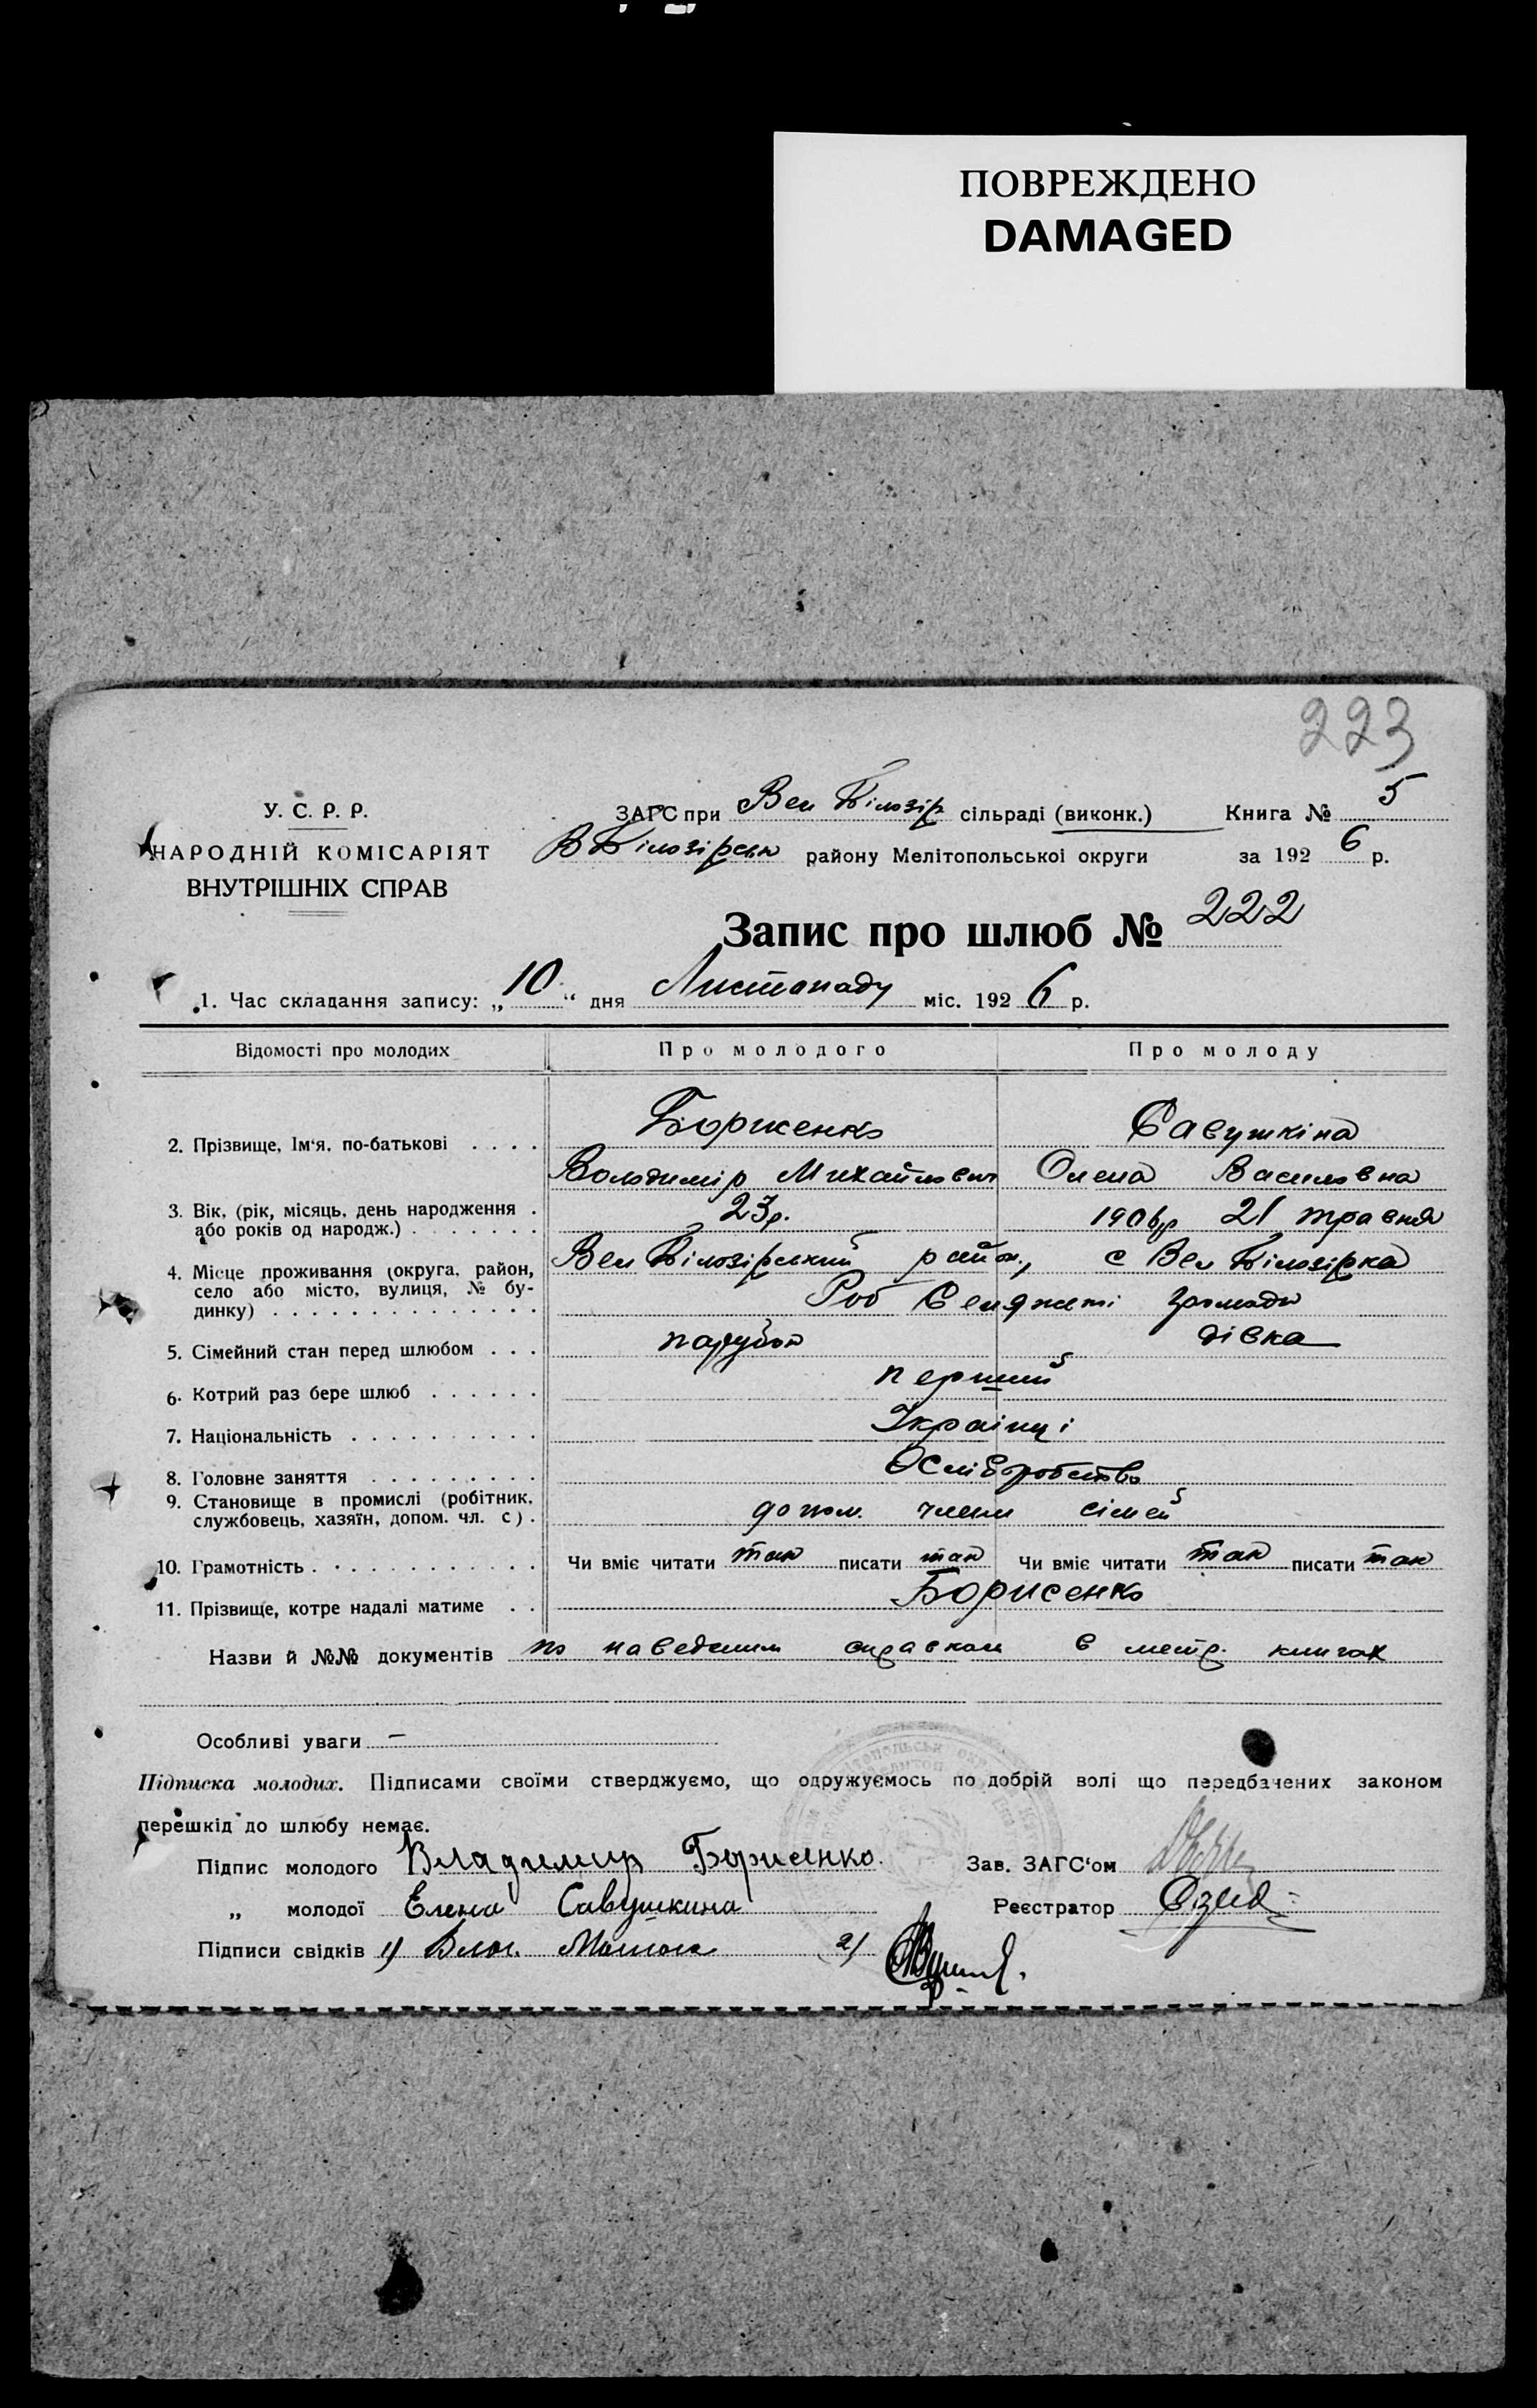 ПОВРЕЖДЕНО
DAMAGED
223
У. С. Р. Р.
НАРОДНІЙ КОМІСАРІЯТ
ВНУТРІШНІХ СПРАВ
ЗАГС при Вел Білозір сільраді (виконк.) Книга № 5
В Білозірськ району Мелітопольської округи за 192 6 р.
Запис про шлюб № 222
1. Час складання запису: „10“ дня Листопаду міс. 192 6 р.
Відомості про молодих Про молодого Про молоду
2. Прізвище, Ім'я, по-батькові . . . . Борисенко Савушкіна
Володимір Михайлович Олена Василовна
3. Вік, (рік, місяць, день народження . або років од народж.) . . . . . . . 23р. 1906р 21 травня
4. Місце проживання (округа, район, село або місто, вулиця, № будинку) . . . . . . . . . . . . . . Вел Білозірський район, с Вел Білозірка
Роб громади
5. Сімейний стан перед шлюбом . . . парубок дівка
6. Котрий раз бере шлюб . . . . . . перший
7. Національність . . . . . . . . . . Українці
8. Головне заняття . . . . . . . . .
9. Становище в промислі (робітник, службовець, хазяїн, допом. чл. с) . допом. члени сімей
10. Грамотність . . . . . . . . . . . . Чи вміє читати так писати так Чи вміє читати так писати так
11. Прізвище, котре надалі матиме . . Борисенко
Назви й №№ документів по наведеним справкам в метр. книгах
Особливі уваги –
Підписка молодих. Підписами своїми стверджуємо, що одружуємось по добрій волі що передбачених законом
перешкід до шлюбу немає.
Підпис молодого Владимир Борисенко. Зав. ЗАГС'ом
„ молодої Елена Савушкина Реєстратор
Підписи свідків 1) 2)